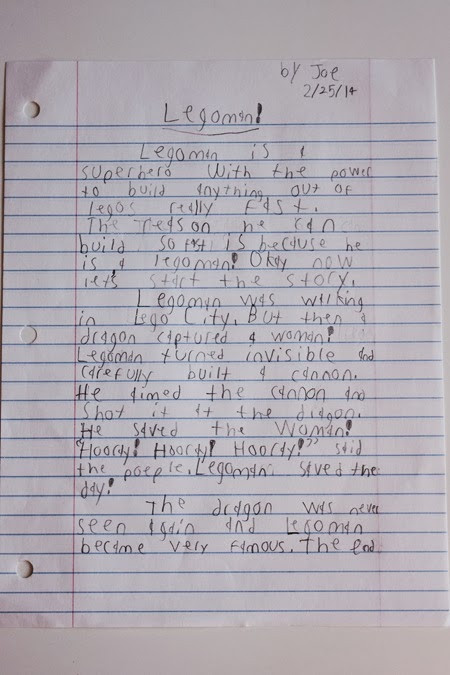 by Joe
2/25/14
Legoman!
Legoman is a
superhero with the power
to build anything out of
legos really fast.
The reason he can
build so fast is because he
is a legoman! Okay now
lets start the story.
Legoman was walking
in Lego City. But then a
dragon captured a woman!
Legoman turned invisible and
carefully built a cannon.
He aimed the cannon and
shot it at the dragon.
He saved the woman!
"Hooray! Hooray! Hooray!" said
the poeple. Legoman saved the
day!
The dragon was never
seen again and Legoman
became very famous. The end.